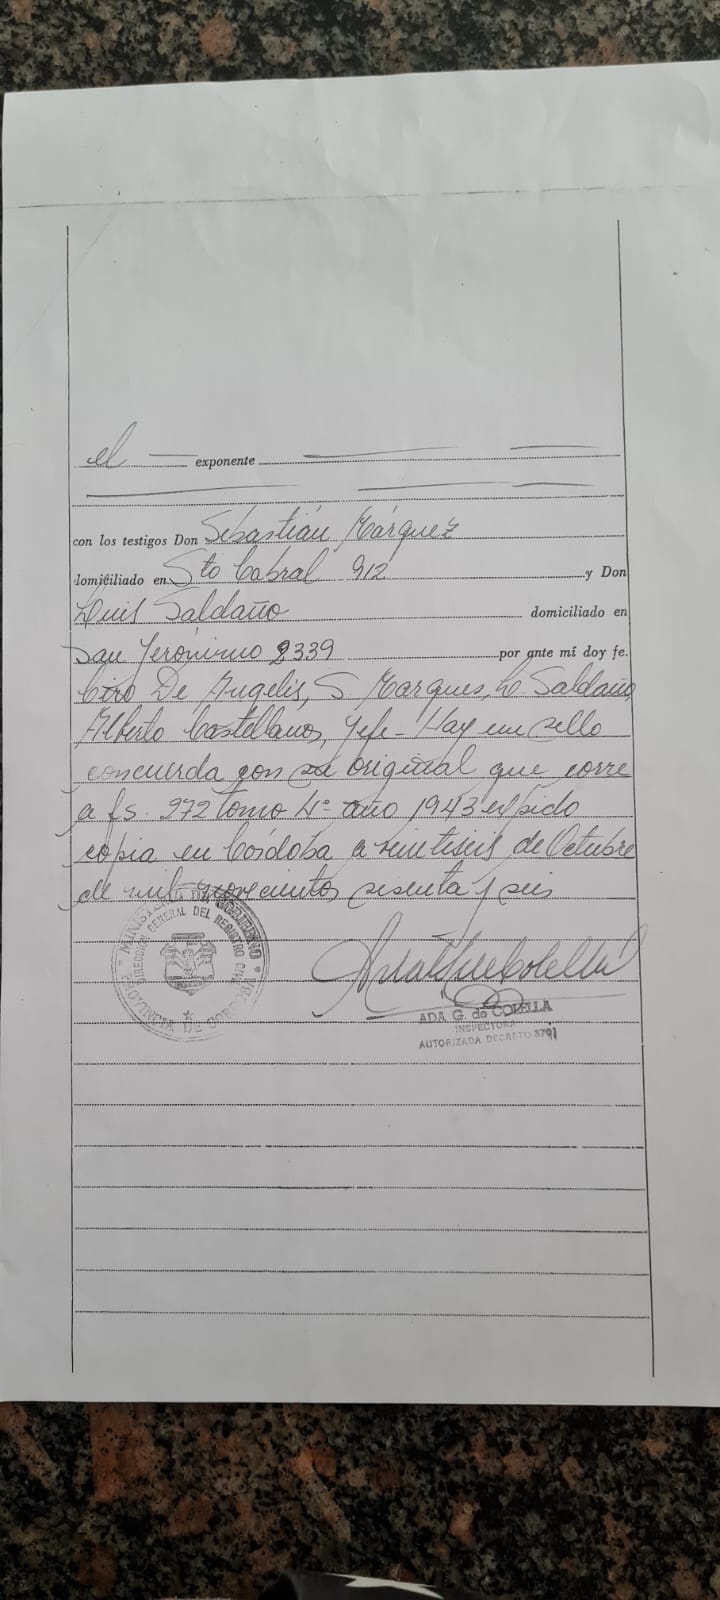 el exponente
con los testigos Don Sebastián Márquez
domiciliado en Sto Cabral 912 y Don
Luis Saldaño domiciliado en
San Jerónimo 2339 por ante mi doy fe.
Ciro De Angelis, S. Marques, L. Saldaño,
Alberto Castellanos, Jefe - Hay un sello
concuerda con su original que corre
a fs. 272 tomo 4º año 1943 expido
copia en Córdoba a veintiseis de Octubre
de mil novecientos sesenta y seis
MINISTERIO DE GOBIERNO
DIRECCION GENERAL DEL REGISTRO CIVIL
PROVINCIA DE CORDOBA
ADA G. de COLELLA
INSPECTORA
AUTORIZADA DECRETO 3791